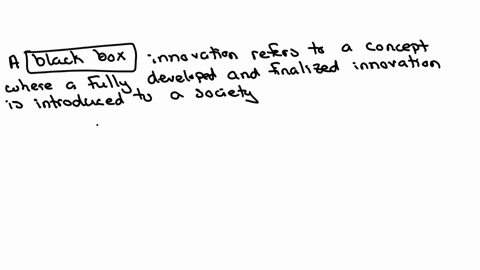 A black box innovation refers to a concept
where a fully developed and finalized innovation
is introduced to a society